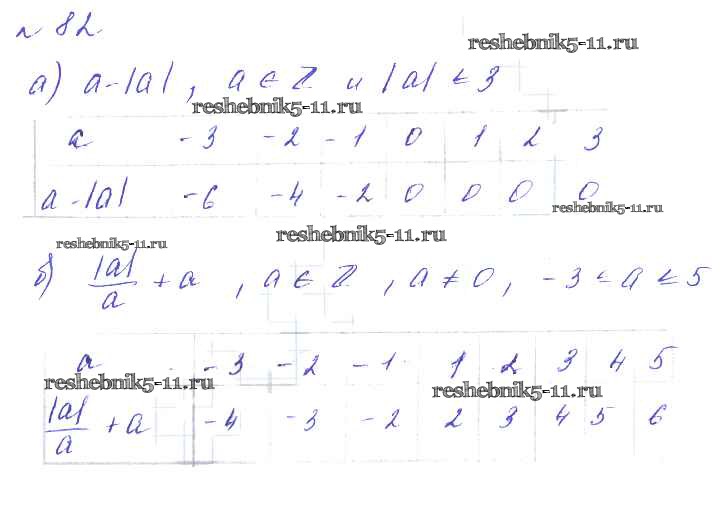 № 82.
reshebnik5-11.ru
а) a-|a|, a ∈ Z и |a| ≤ 3
reshebnik5-11.ru
a -3 -2 -1 0 1 2 3
a-|a| -6 -4 -2 0 0 0 0
reshebnik5-11.ru
reshebnik5-11.ru
reshebnik5-11.ru
б) |a|/a + a, a ∈ Z, a ≠ 0, -3 ≤ a ≤ 5
a -3 -2 -1 1 2 3 4 5
reshebnik5-11.ru
reshebnik5-11.ru
|a|/a + a -4 -3 -2 2 3 4 5 6